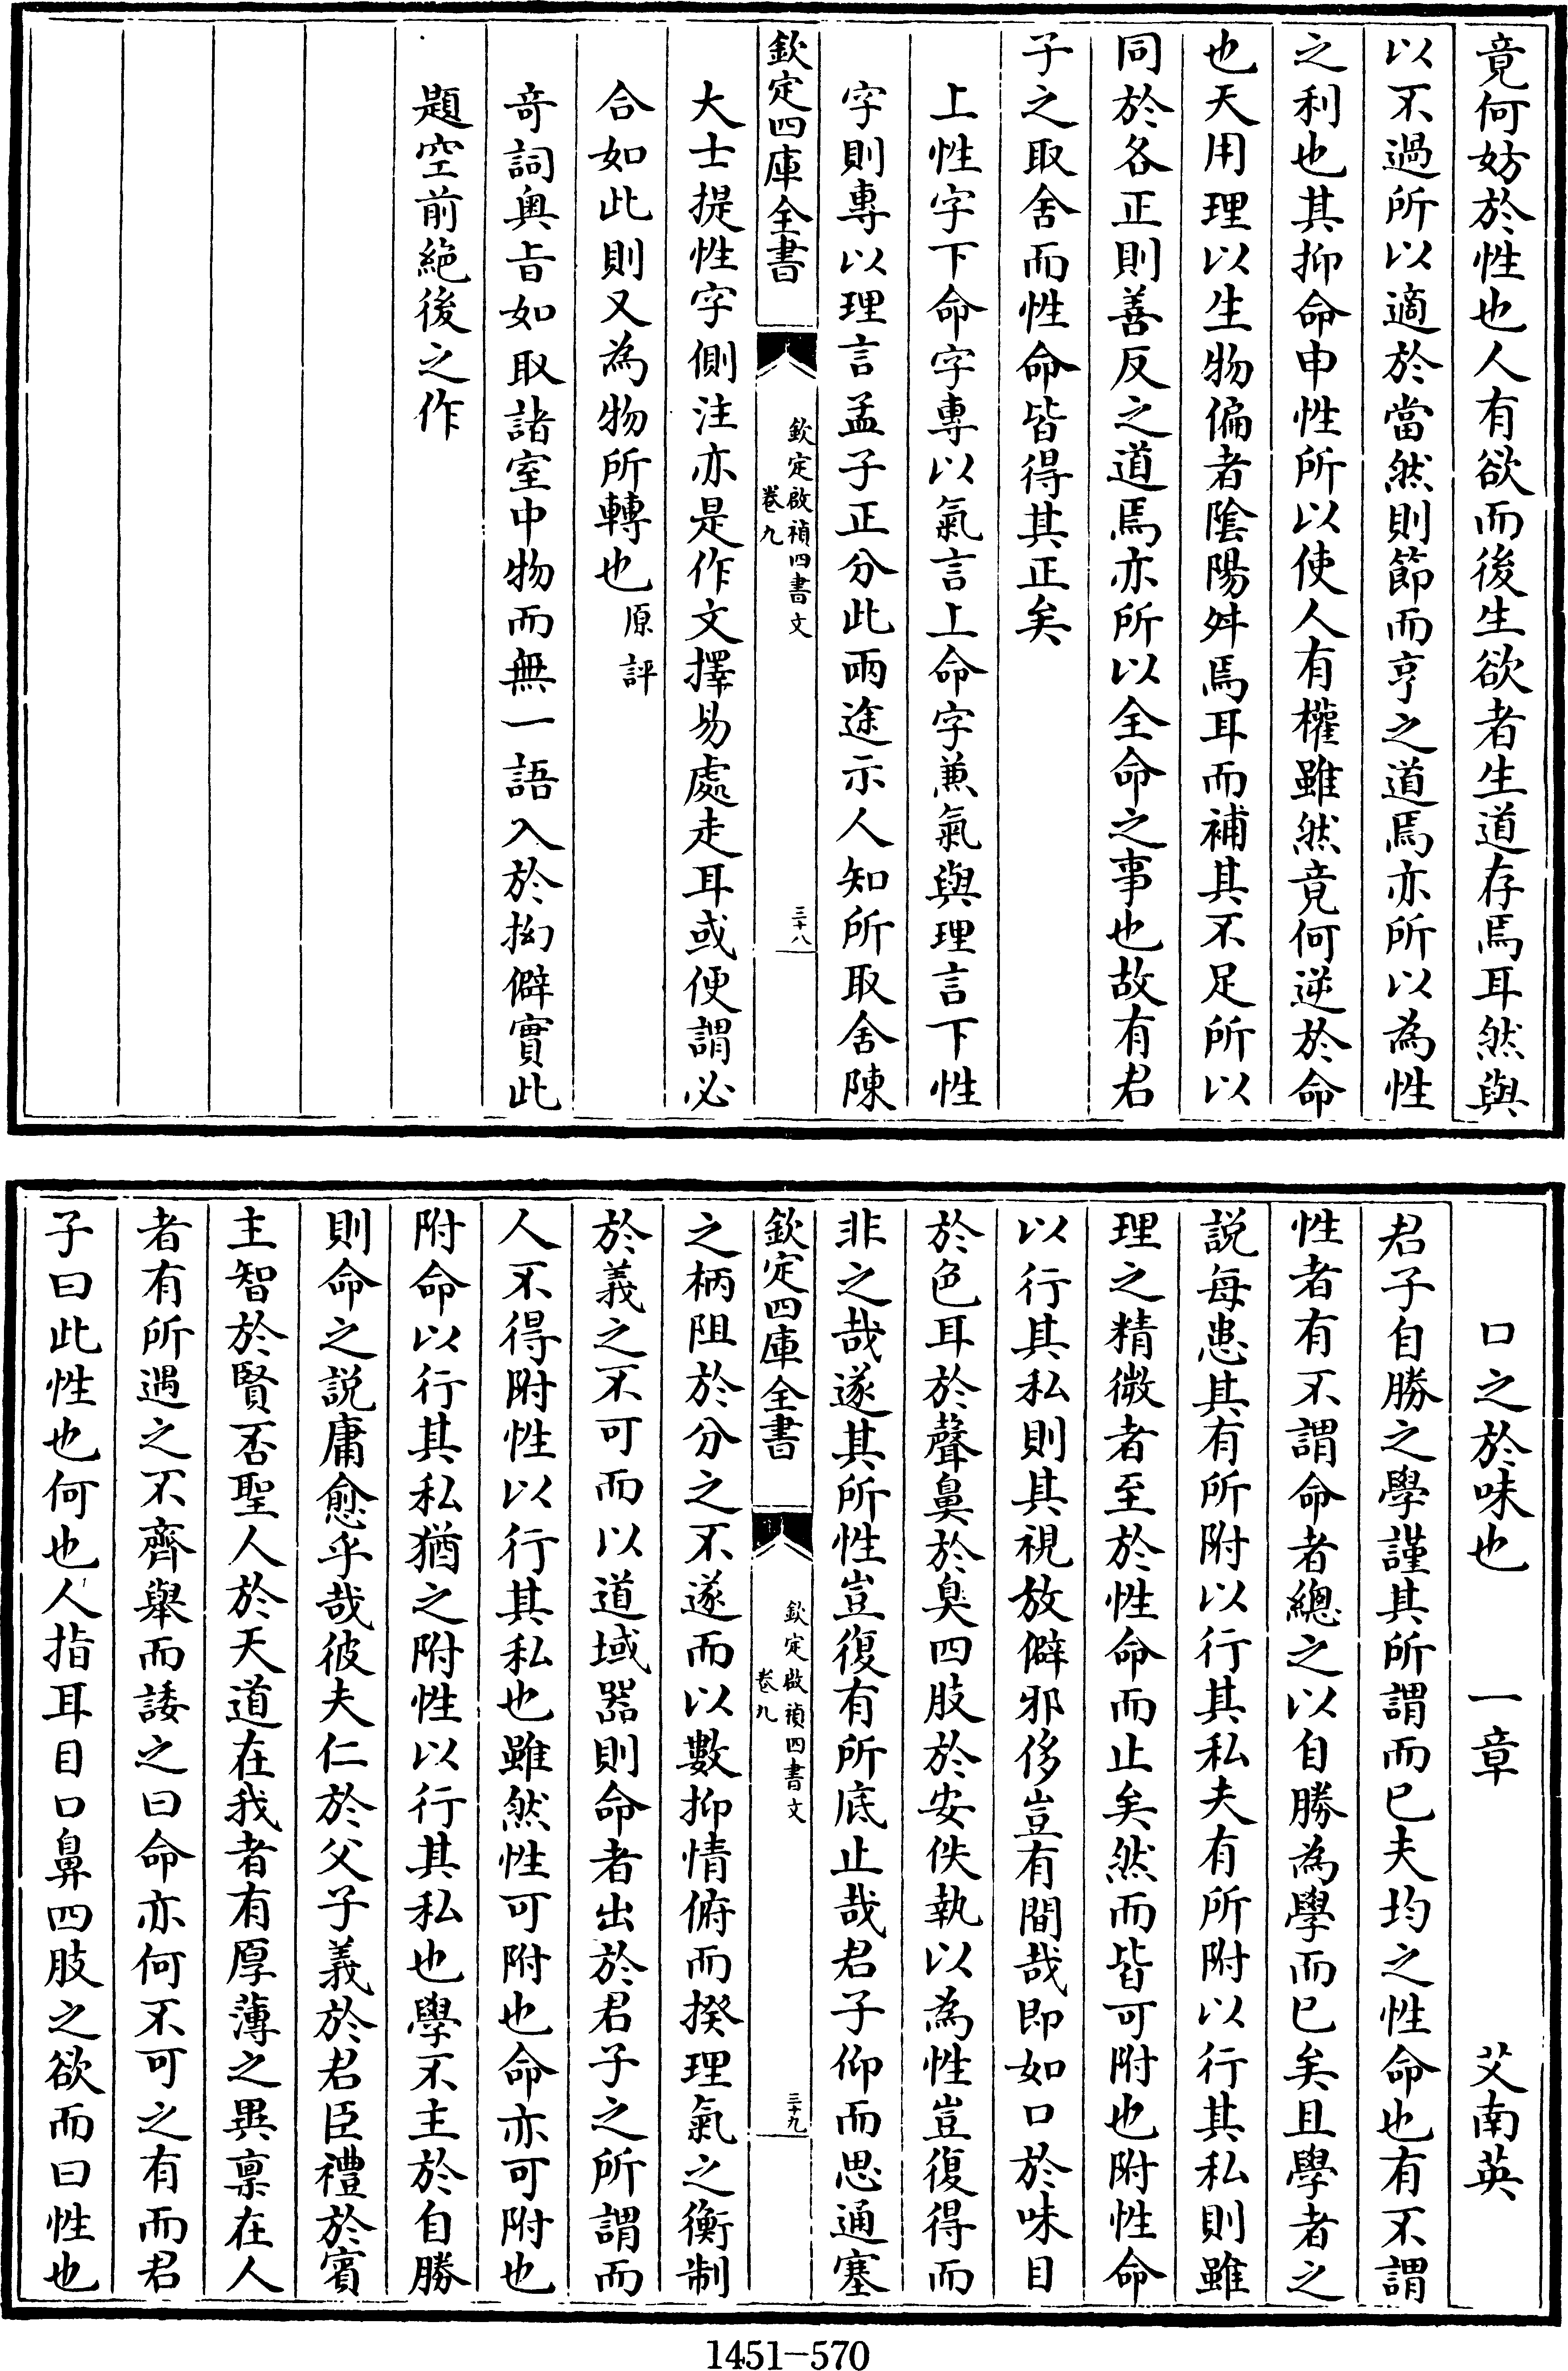 竟何妨於性也人有欲而後生欲者生道存焉耳然與
以不過所以適於當然則節而亨之道焉亦所以為性
之利也其抑命申性所以使人有權雖然竟何逆於命
也天用理以生物偏者陰陽舛焉耳而補其不足所以
同於各正則善反之道焉亦所以全命之事也故有君
子之取舍而性命皆得其正矣
上性字下命字專以氣言上命字兼氣與理言下性
字則專以理言孟子正分此兩途示人知所取舍陳
欽定四庫全書
欽定啟禎四書文
卷九
三十八
大士提性字側注亦是作文擇易處走耳或便謂必
合如此則又為物所轉也原評
奇詞奧旨如取諸室中物而無一語入於拗僻實此
題空前絕後之作
口之於味也 一章 艾南英
君子自勝之學謹其所謂而已夫均之性命也有不謂
性者有不謂命者總之以自勝為學而已矣且學者之
說每患其有所附以行其私夫有所附以行其私則雖
理之精微者至於性命而止矣然而皆可附也附性命
以行其私則其視放僻邪侈豈有間哉即如口於味目
於色耳於聲鼻於臭四肢於安佚執以為性豈復得而
非之哉遂其所性豈復有所底止哉君子仰而思通塞
欽定四庫全書
欽定啟禎四書文
卷九
三十九
之柄阻於分之不遂而以數抑情俯而揆理氣之衡制
於義之不可而以道域器則命者出於君子之所謂而
人不得附性以行其私也雖然性可附也命亦可附也
附命以行其私猶之附性以行其私也學不主於自勝
則命之說庸愈乎哉彼夫仁於父子義於君臣禮於賓
主智於賢否聖人於天道在我者有厚薄之異稟在人
者有所遇之不齊舉而諉之曰命亦何不可之有而君
子曰此性也何也人指耳目口鼻四肢之欲而曰性也
1451-570